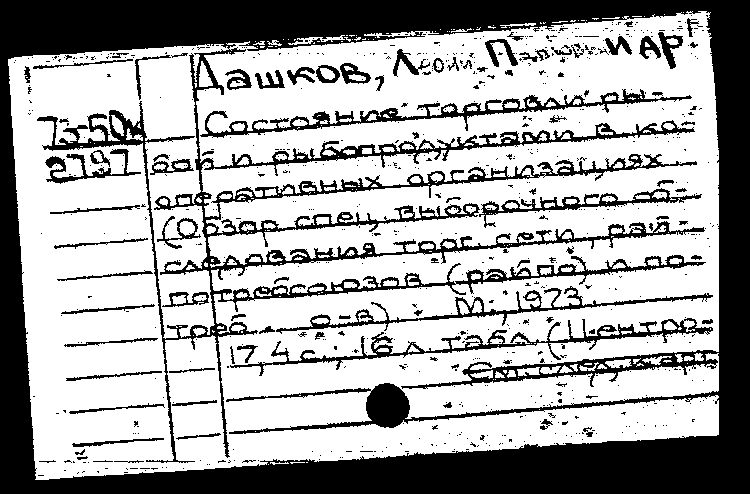 Дашков, Леони П и др.
75-50к Состояние торговли ры-
2797 бой и рыбопродуктами в ко-
оперативных организациях.
(Обзор спец. выборочного об-
следования торг. сети, рай-
потребсоюзов (райпо) и по-
треб. о-в). М., 1973.
17, 4 с., 16 л. табл. (Центро-
См. след. карт.